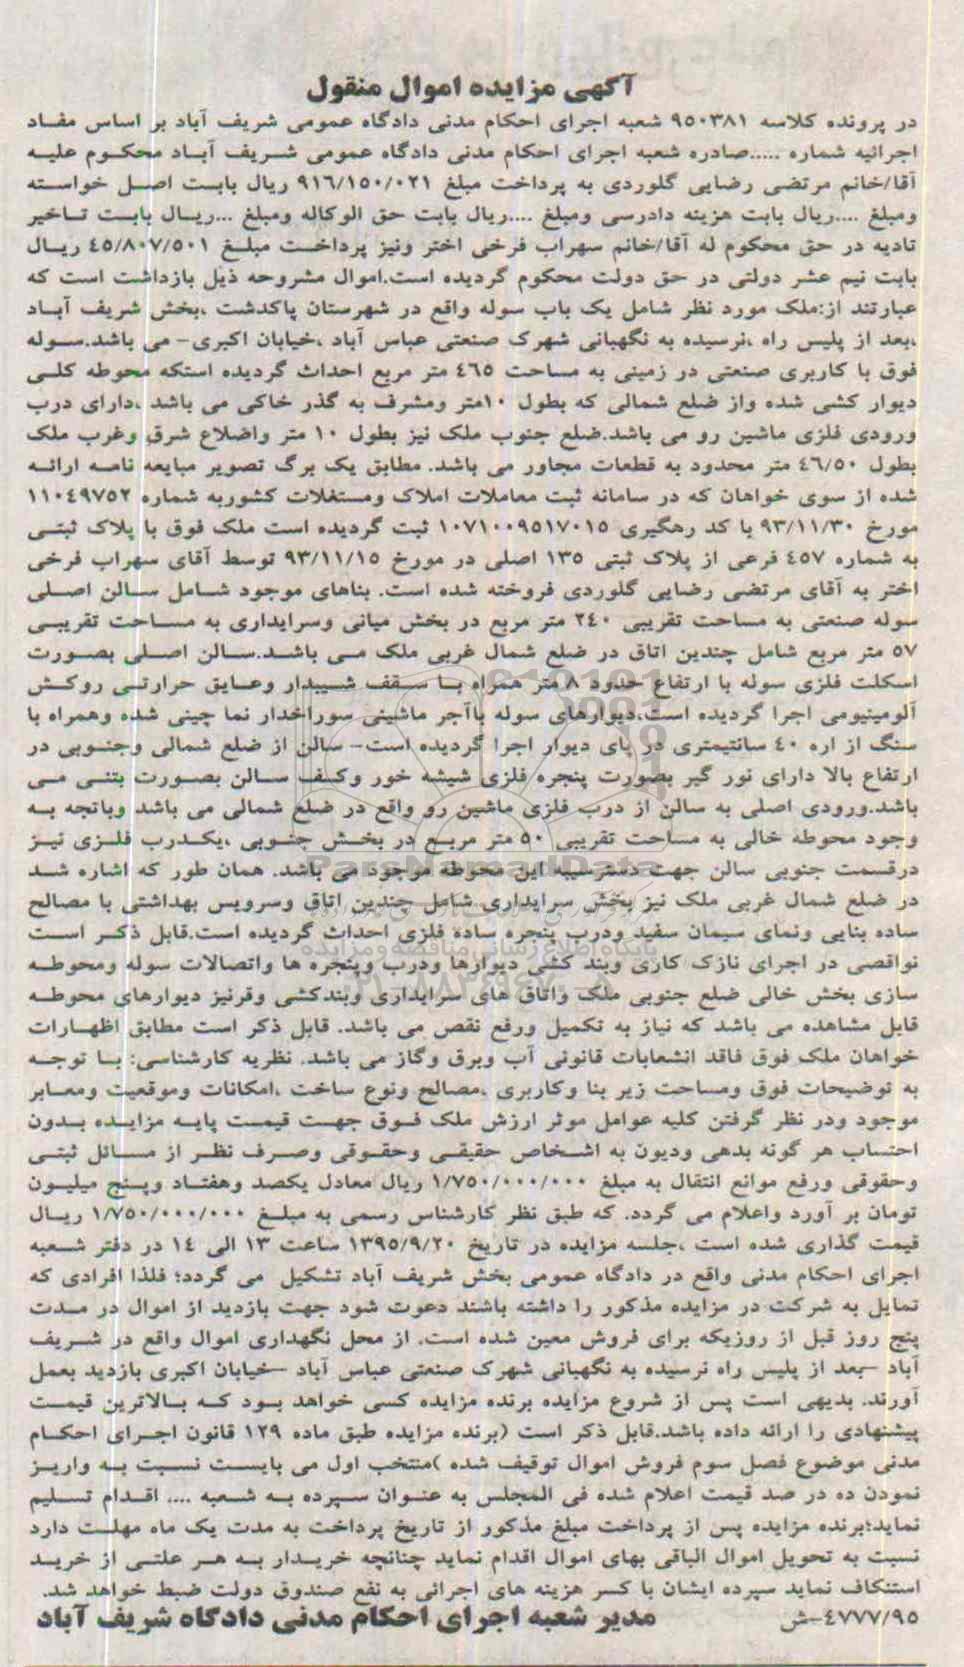 آگهی مزایده اموال منقول
در پرونده کلاسه ۹۵۰۳۸۱ شعبه اجرای احکام مدنی دادگاه عمومی شریف آباد بر اساس مفاد
اجرائیه شماره .....صادره شعبه اجرای احکام مدنی دادگاه عمومی شریف آباد محکوم علیه
آقا/خانم مرتضی رضایی گلوردی به پرداخت مبلغ ۹۱۶/۱۵۰/۰۲۱ ریال بابت اصل خواسته
ومبلغ ....ریال بابت هزینه دادرسی ومبلغ ....ریال بابت حق الوکاله ومبلغ ...ریال بابت تاخیر
تادیه در حق محکوم له آقا/خانم سهراب فرخی اختر ونیز پرداخت مبلغ ۴۵/۸۰۷/۵۰۱ ریال
بابت نیم عشر دولتی در حق دولت محکوم گردیده است.اموال مشروحه ذیل بازداشت است که
عبارتند از:ملک مورد نظر شامل یک باب سوله واقع در شهرستان پاکدشت ،بخش شریف آباد
،بعد از پلیس راه ،نرسیده به نگهبانی شهرک صنعتی عباس آباد ،خیابان اکبری- می باشد.سوله
فوق با کاربری صنعتی در زمینی به مساحت ۴۶۵ متر مربع احداث گردیده استکه محوطه کلی
دیوار کشی شده واز ضلع شمالی که بطول ۱۰متر ومشرف به گذر خاکی می باشد ،دارای درب
ورودی فلزی ماشین رو می باشد.ضلع جنوب ملک نیز بطول ۱۰ متر واضلاع شرق وغرب ملک
بطول ۴۶/۵۰ متر محدود به قطعات مجاور می باشد. مطابق یک برگ تصویر مبایعه نامه ارائه
شده از سوی خواهان که در سامانه ثبت معاملات املاک ومستغلات کشوربه شماره ۱۱۰۴۹۷۵۲
مورخ ۹۳/۱۱/۳۰ با کد رهگیری ۱۰۷۱۰۰۹۵۱۷۰۱۵ ثبت گردیده است ملک فوق با پلاک ثبتی
به شماره ۴۵۷ فرعی از پلاک ثبتی ۱۳۵ اصلی در مورخ ۹۳/۱۱/۱۵ توسط آقای سهراب فرخی
اختر به آقای مرتضی رضایی گلوردی فروخته شده است. بناهای موجود شامل سالن اصلی
سوله صنعتی به مساحت تقریبی ۲۴۰ متر مربع در بخش میانی وسرایداری به مساحت تقریبی
۵۷ متر مربع شامل چندین اتاق در ضلع شمال غربی ملک می باشد.سالن اصلی بصورت
اسکلت فلزی سوله با ارتفاع حدود ۸ متر همراه با سقف شیبدار وعایق حرارتی روکش
آلومینیومی اجرا گردیده است،دیوارهای سوله باآجر ماشینی سوراخدار نما چینی شده وهمراه با
سنگ از اره ۴۰ سانتیمتری در پای دیوار اجرا گردیده است- سالن از ضلع شمالی وجنوبی در
ارتفاع بالا دارای نور گیر بصورت پنجره فلزی شیشه خور وکف سالن بصورت بتنی می
باشد.ورودی اصلی به سالن از درب فلزی ماشین رو واقع در ضلع شمالی می باشد وباتجه به
وجود محوطه خالی به مساحت تقریبی ۵۰ متر مربع در بخش جنوبی ،یکدرب فلزی نیز
درقسمت جنوبی سالن جهت دسترسیبه این محوطه موجود می باشد. همان طور که اشاره شد
در ضلع شمال غربی ملک نیز بخش سرایداری شامل چندین اتاق وسرویس بهداشتی با مصالح
ساده بنایی ونمای سیمان سفید ودرب پنجره ساده فلزی احداث گردیده است.قابل ذکر است
نواقصی در اجرای نازک کاری وبند کشی دیوارها ودرب وپنجره ها واتصالات سوله ومحوطه
سازی بخش خالی ضلع جنوبی ملک واتاق های سرایداری وبندکشی وقرنیز دیوارهای محوطه
قابل مشاهده می باشد که نیاز به تکمیل ورفع نقص می باشد. قابل ذکر است مطابق اظهارات
خواهان ملک فوق فاقد انشعابات قانونی آب وبرق وگاز می باشد. نظریه کارشناسی: با توجه
به توضیحات فوق ومساحت زیر بنا وکاربری ،مصالح ونوع ساخت ،امکانات وموقعیت ومعابر
موجود ودر نظر گرفتن کلیه عوامل موثر ارزش ملک فوق جهت قیمت پایه مزایده بدون
احتساب هر گونه بدهی ودیون به اشخاص حقیقی وحقوقی وصرف نظر از مسائل ثبتی
وحقوقی ورفع موانع انتقال به مبلغ ۱/۷۵۰/۰۰۰/۰۰۰ ریال معادل یکصد وهفتاد وپنج میلیون
تومان بر آورد واعلام می گردد. که طبق نظر کارشناس رسمی به مبلغ ۱/۷۵۰/۰۰۰/۰۰۰ ریال
قیمت گذاری شده است ،جلسه مزایده در تاریخ ۱۳۹۵/۹/۲۰ ساعت ۱۳ الی ۱۴ در دفتر شعبه
اجرای احکام مدنی واقع در دادگاه عمومی بخش شریف آباد تشکیل می گردد؛ فلذا افرادی که
تمایل به شرکت در مزایده مذکور را داشته باشند دعوت شود جهت بازدید از اموال در مدت
پنج روز قبل از روزیکه برای فروش معین شده است. از محل نگهداری اموال واقع در شریف
آباد –بعد از پلیس راه نرسیده به نگهبانی شهرک صنعتی عباس آباد –خیابان اکبری بازدید بعمل
آورند. بدیهی است پس از شروع مزایده برنده مزایده کسی خواهد بود که بالاترین قیمت
پیشنهادی را ارائه داده باشد.قابل ذکر است (برنده مزایده طبق ماده ۱۲۹ قانون اجرای احکام
مدنی موضوع فصل سوم فروش اموال توقیف شده )منتخب اول می بایست نسبت به واریز
نمودن ده در صد قیمت اعلام شده فی المجلس به عنوان سپرده به شعبه .... اقدام تسلیم
نماید؛برنده مزایده پس از پرداخت مبلغ مذکور از تاریخ پرداخت به مدت یک ماه مهلت دارد
نسبت به تحویل اموال الباقی بهای اموال اقدام نماید چنانچه خریدار به هر علتی از خرید
استنکاف نماید سپرده ایشان با کسر هزینه های اجرائی به نفع صندوق دولت ضبط خواهد شد.
۴۷۷۷/۹۵-ش مدیر شعبه اجرای احکام مدنی دادگاه شریف آباد
ParsNamadData
پایگاه اطلاع رسانی مناقصه و مزایده